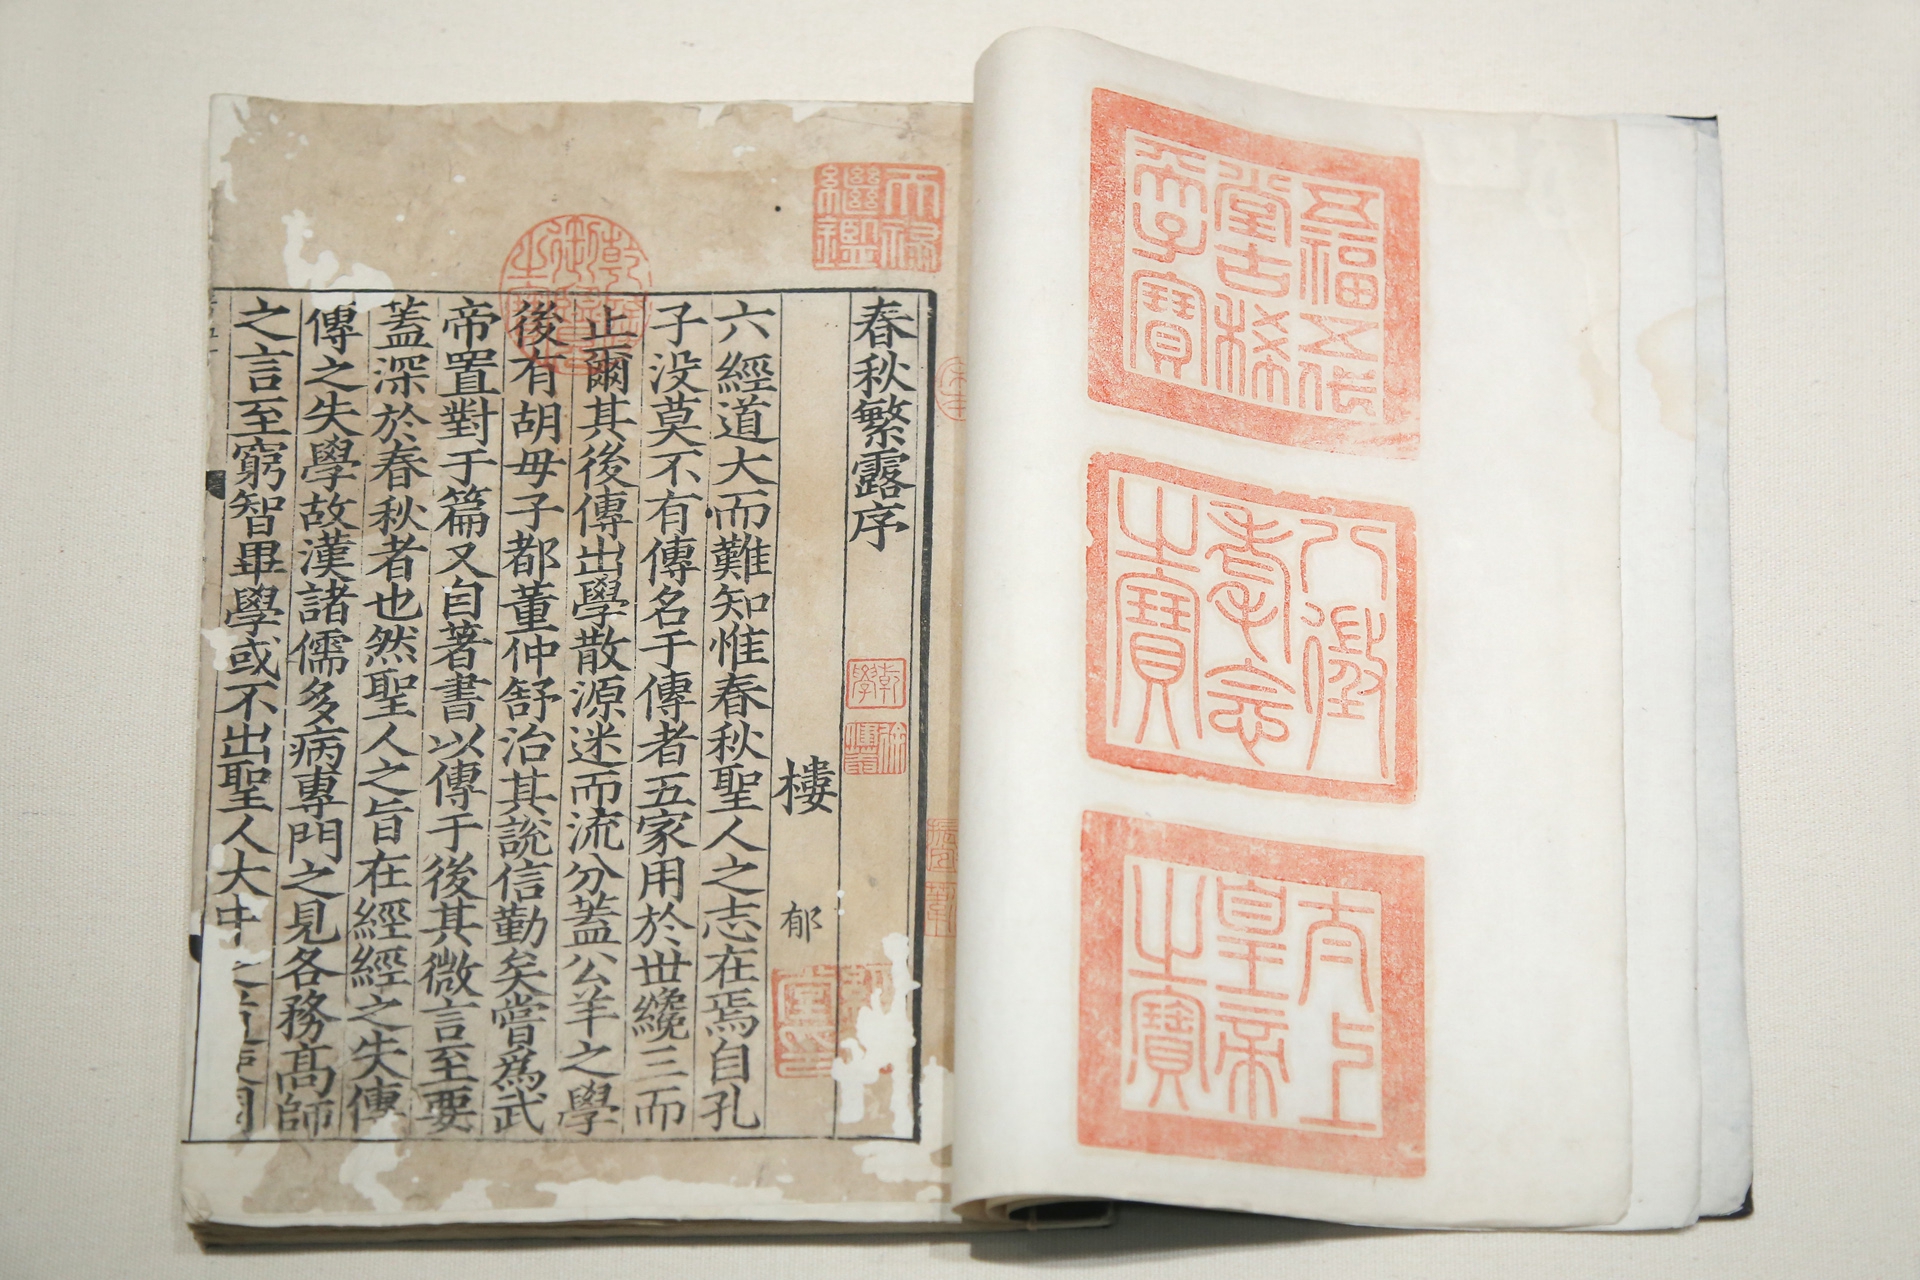 五福五代
堂古稀
天子寶
八徵
耄念
之寶
太上
皇帝
之寶
天祿
繼鑑
乾隆御覽之寶
春秋繁露序
乾學
樓 郁
六經道大而難知惟春秋聖人之志在焉自孔
子没莫不有傳名于傳者五家用於世纔三而
止爾其後傳出學散源迷而流分蓋公羊之學
後有胡毋子都董仲舒治其說信勤矣嘗爲武
帝置對于篇又自著書以傳于後其微言至要
蓋深於春秋者也然聖人之旨在經經之失傳
傳之失學故漢諸儒多病專門之見各務髙師
之言至窮智畢學或不出聖人大中